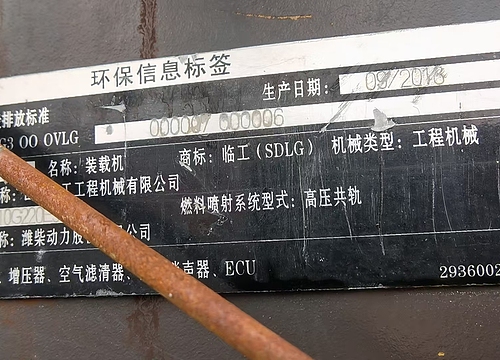 环保信息标签
生产日期: 09/2018
排放标准
G3 00 0VLG
00000/ 000006
名称: 装载机 商标: 临工(SDLG) 机械类型: 工程机械
工程机械有限公司
10G220 燃料喷射系统型式: 高压共轨
称: 潍柴动力股 公司
、增压器、空气滤清器、 声器、ECU
2936002